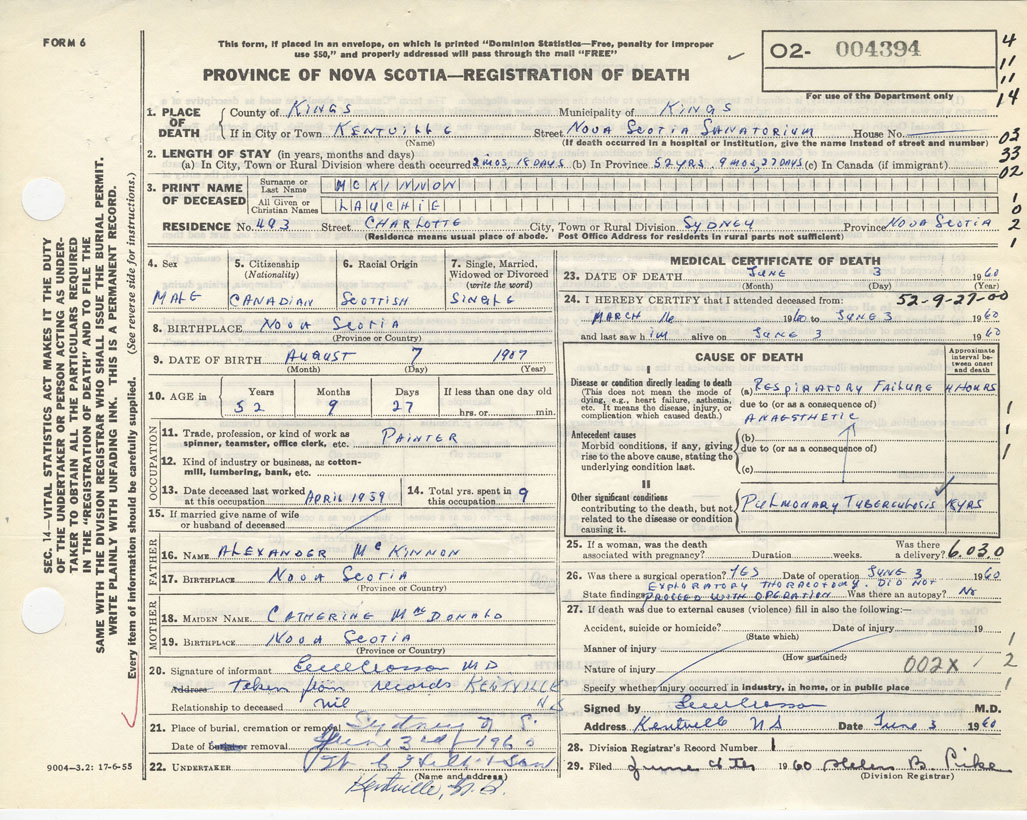 FORM 6
This form, if placed in an envelope, on which is printed "Dominion Statistics—Free, penalty for improper
use $50," and properly addressed will pass through the mail "FREE"
PROVINCE OF NOVA SCOTIA—REGISTRATION OF DEATH
O2- 004394
For use of the Department only
4
11
11
14
1. PLACE OF DEATH
County of KINGS Municipality of KINGS
If in City or Town KENTVILLE Street NOVA SCOTIA SANATORIUM House No.
(Name) (If death occurred in a hospital or institution, give the name instead of street and number)
03
33
02
2. LENGTH OF STAY (in years, months and days)
(a) In City, Town or Rural Division where death occurred 2 MOS, 18 DAYS (b) In Province 52 YRS. 9 MOS, 27 DAYS (c) In Canada (if immigrant)
3. PRINT NAME OF DECEASED
Surname or Last Name MCKINNON
All Given or Christian Names LAUCHIE
1
0
2
1
RESIDENCE No. 493 Street CHARLOTTE City, Town or Rural Division SYDNEY Province NOVA SCOTIA
(Residence means usual place of abode. Post Office Address for residents in rural parts not sufficient)
4. Sex
MALE
5. Citizenship
(Nationality)
CANADIAN
6. Racial Origin
SCOTTISH
7. Single, Married,
Widowed or Divorced
(write the word)
SINGLE
8. BIRTHPLACE NOVA SCOTIA
(Province or Country)
9. DATE OF BIRTH AUGUST 7 1907
(Month) (Day) (Year)
10. AGE in Years Months Days If less than one day old
52 9 27 hrs. or min.
OCCUPATION
11. Trade, profession, or kind of work as
spinner, teamster, office clerk, etc. PAINTER
12. Kind of industry or business, as cotton-
mill, lumbering, bank, etc.
13. Date deceased last worked
at this occupation APRIL 1959
14. Total yrs. spent in
this occupation 9
15. If married give name of wife
or husband of deceased
FATHER
16. NAME ALEXANDER MCKINNON
17. BIRTHPLACE NOVA SCOTIA
(Province or Country)
MOTHER
18. MAIDEN NAME CATHERINE MCDONALD
19. BIRTHPLACE NOVA SCOTIA
(Province or Country)
20. Signature of informant MD
Address Taken from records KENTVILLE NS
Relationship to deceased nil
21. Place of burial, cremation or removal Sydney N S.
Date of burial or removal June 3rd 1960
22. UNDERTAKER
(Name and address)
Kentville, N.S.
MEDICAL CERTIFICATE OF DEATH
23. DATE OF DEATH JUNE 3 1960
(Month) (Day) (Year)
24. I HEREBY CERTIFY that I attended deceased from: 52-9-27-00
MARCH 16 1960 to JUNE 3 1960
and last saw him alive on JUNE 3 1960
CAUSE OF DEATH
Approximate
interval between
onset
and death
I
Disease or condition directly leading to death
(This does not mean the mode of
dying, e.g., heart failure, asthenia,
etc. It means the disease, injury, or
complication which caused death.)
(a) RESPIRATORY FAILURE 4 HOURS
due to (or as a consequence of)
ANAESTHETIC
Antecedent causes
Morbid conditions, if any, giving
rise to the above cause, stating the
underlying condition last.
(b)
due to (or as a consequence of)
(c)
1
1
1
II
Other significant conditions
contributing to the death, but not
related to the disease or condition
causing it.
PULMONARY TUBERCULOSIS YRS
25. If a woman, was the death
associated with pregnancy? Duration weeks. Was there
a delivery? 6.03.0
26. Was there a surgical operation? YES Date of operation JUNE 3 1960
EXPLORATORY THORACOTOMY. DID NOT
State findings PROCEED WITH OPERATION Was there an autopsy? No
27. If death was due to external causes (violence) fill in also the following:—
Accident, suicide or homicide? Date of injury 19
(State which)
Manner of injury
(How sustained)
Nature of injury 002X
1
1 2
1
Specify whether injury occurred in industry, in home, or in public place
Signed by M.D.
Address Kentville NS Date June 3 1960
28. Division Registrar's Record Number 1
29. Filed June 4th 1960 Helen B. Pike
(Division Registrar)
SEC. 14—VITAL STATISTICS ACT MAKES IT THE DUTY
OF THE UNDERTAKER OR PERSON ACTING AS UNDER-
TAKER TO OBTAIN ALL THE PARTICULARS REQUIRED
IN THE "REGISTRATION OF DEATH" AND TO FILE THE
SAME WITH THE DIVISION REGISTRAR WHO SHALL ISSUE THE BURIAL PERMIT.
WRITE PLAINLY WITH UNFADING INK. THIS IS A PERMANENT RECORD.
Every item of information should be carefully supplied. (See reverse side for instructions.)
9004-3.2: 17-6-55